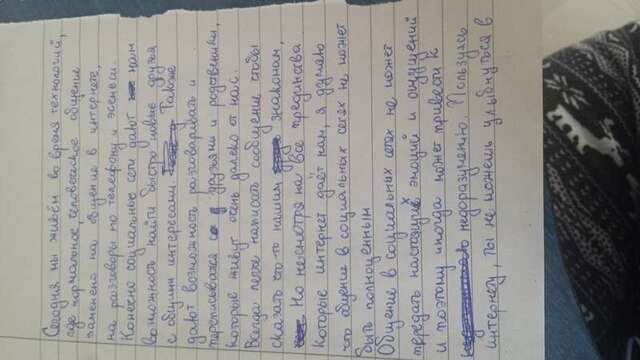 Сегодня мы живём во время технологий,
где нормальное, человеческое общение
заменено на общение в интернете,
на разговоры по телефону и эсемеси.
Конечно социальные сети дают нам
возможность найти быстро новые друзья
с общими интересами. Также
дают возможность разговаривать и
переписывахся с друзьями и родственики,
которые живут очень далеко от нас.
Всегда легче написать сообщение чтобы
сказать что-то нашим знаконам,
Но несмотря на все прединства
которые интернет даёт нам, я думаю
что общение в социальных сетях не может
быть полноценным
Общение в социальных сетях не может
передать настоящих эмоций и ощущений
и поэтому иногда может привести к
недоразумению. Пользуясь
интернету, ты не можешь улыбнуться в